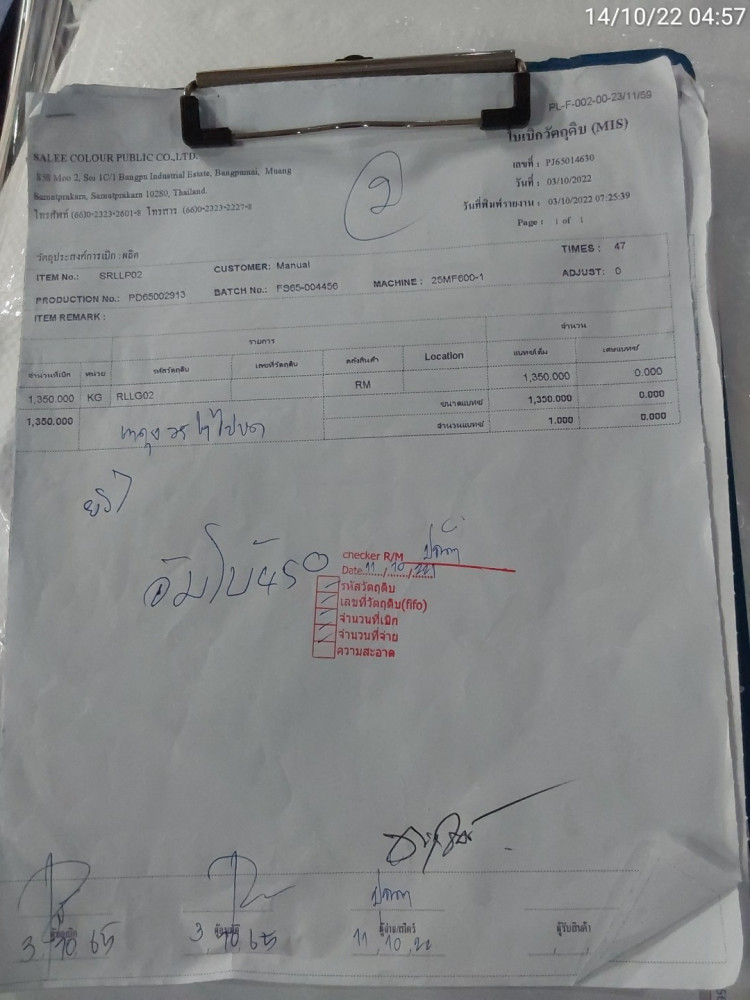 14/10/22 04:57
PL-F-002-00-23/11/59
ใบเบิกวัตถุดิบ (MIS)
SALEE COLOUR PUBLIC CO.,LTD.
858 Moo 2, Soi 1C/1 Bangpu Industrial Estate, Bangpumai, Muang
Samutprakarn, Samutprakarn 10280, Thailand
โทรศัพท์ (66)0-2323-2601-8 โทรสาร (66)0-2323-2227-8
เลขที่ : PJ65014630
วันที่ : 03/10/2022
วันที่พิมพ์รายงาน : 03/10/2022 07:25:39
Page : 1 of 1
2
วัตถุประสงค์การเบิก : ผลิต
TIMES : 47
ITEM No.: SRLLP02 CUSTOMER: Manual
ADJUST: 0
PRODUCTION No.: PD65002913 BATCH No.: FS65-004456 MACHINE : 25MF600-1
ITEM REMARK :
รายการ จำนวน
จำนวนที่เบิก หน่วย รหัสวัตถุดิบ เลขที่วัตถุดิบ คลังสินค้า Location แบทช์เต็ม เศษแบทช์
1,350.000 KG RLLG02 RM 1,350.000 0.000
1,350.000 ขนาดแบทช์ 1,350.000 0.000
จำนวนแบทช์ 1.000 0.000
450
checker R/M
Date 11/10/22
รหัสวัตถุดิบ
เลขที่วัตถุดิบ(fifo)
จำนวนที่เบิก
จำนวนที่จ่าย
ความสะอาด
ผู้จ่าย/สโตร์ ผู้รับสินค้า
3 10 65 3 10 65 11 10 22